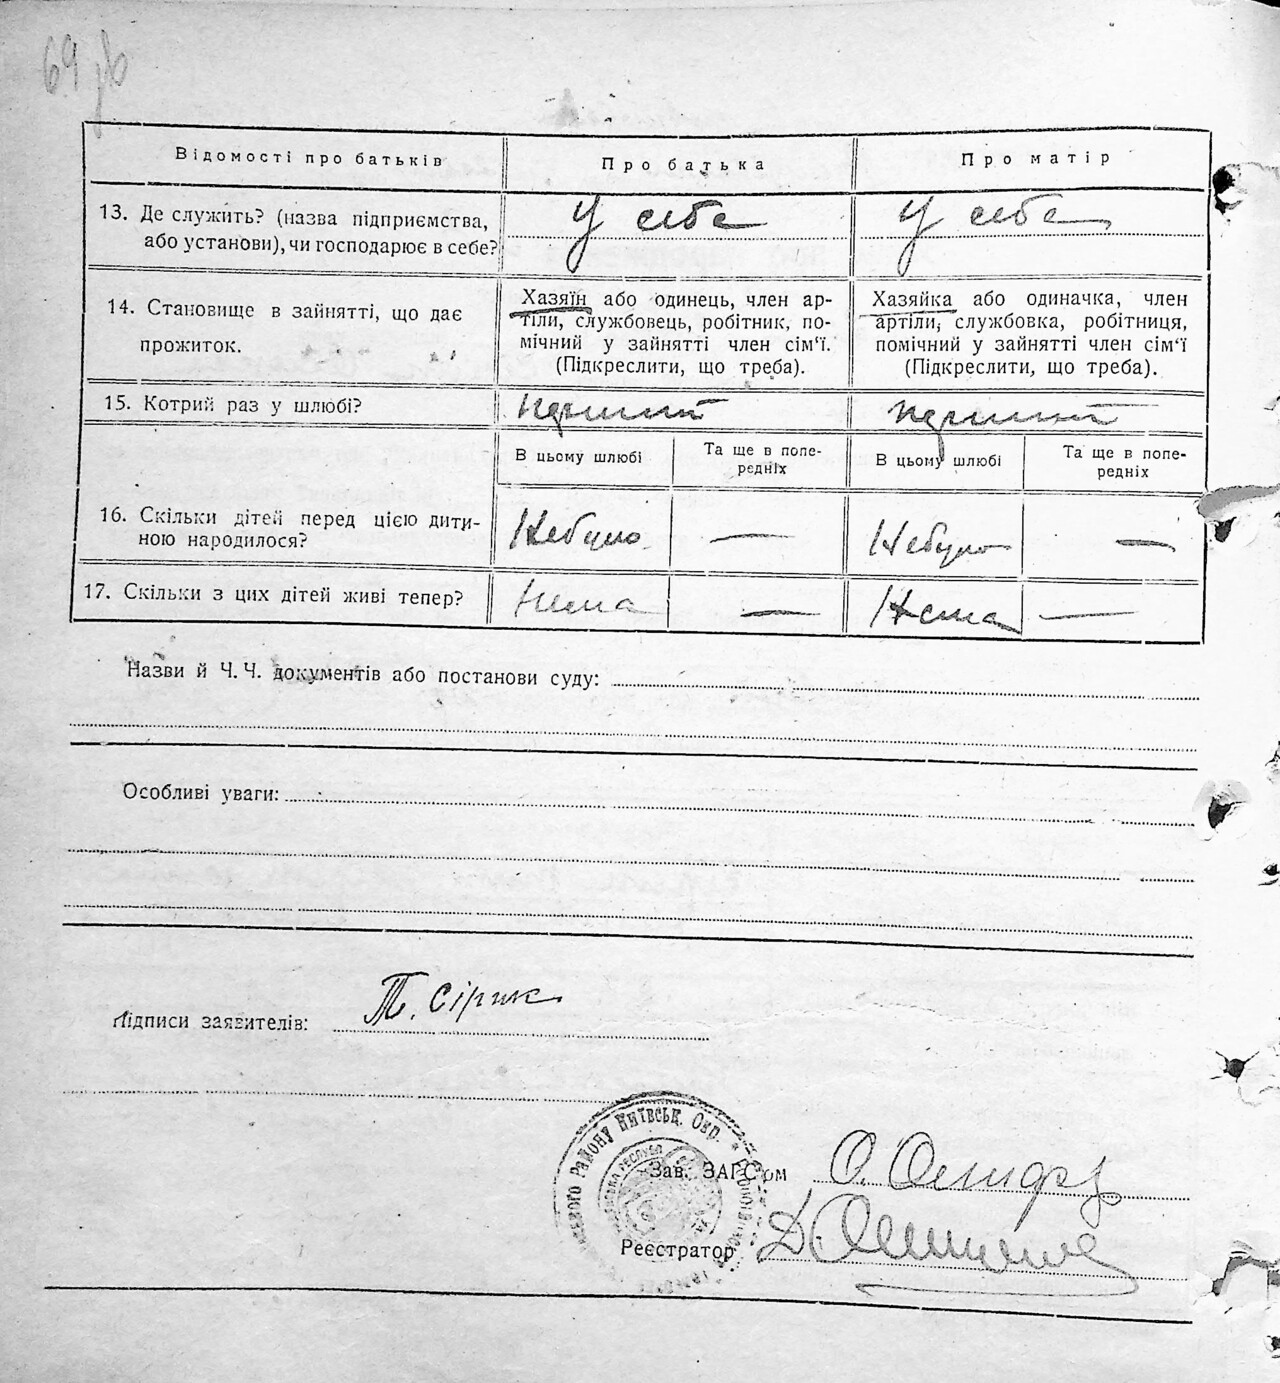 69 зв
Відомості про батьків
Про батька
Про матір
13. Де служить? (назва підприємства,
або установи), чи господарює в себе?
У себе
У себе
14. Становище в зайнятті, що дає
прожиток.
Хазяїн або одинець, член ар-
тіли, службовець, робітник, по-
мічний у зайнятті член сім'ї.
(Підкреслити, що треба).
Хазяйка або одиначка, член
артіли, службовка, робітниця,
помічний у зайнятті член сім'ї
(Підкреслити, що треба).
15. Котрий раз у шлюбі?
перший
перший
В цьому шлюбі
Та ще в попе-
редніх
В цьому шлюбі
Та ще в попе-
редніх
16. Скільки дітей перед цією дити-
ною народилося?
Небуло
—
Небуло
—
17. Скільки з цих дітей живі тепер?
Нема
—
Нема
—
Назви й Ч. Ч. документів або постанови суду:
Особливі уваги:
Підписи заявителів: Т. Сірик
Району Київськ. Окр.
Зав. ЗАГС'ом О.
Реєстратор Д.